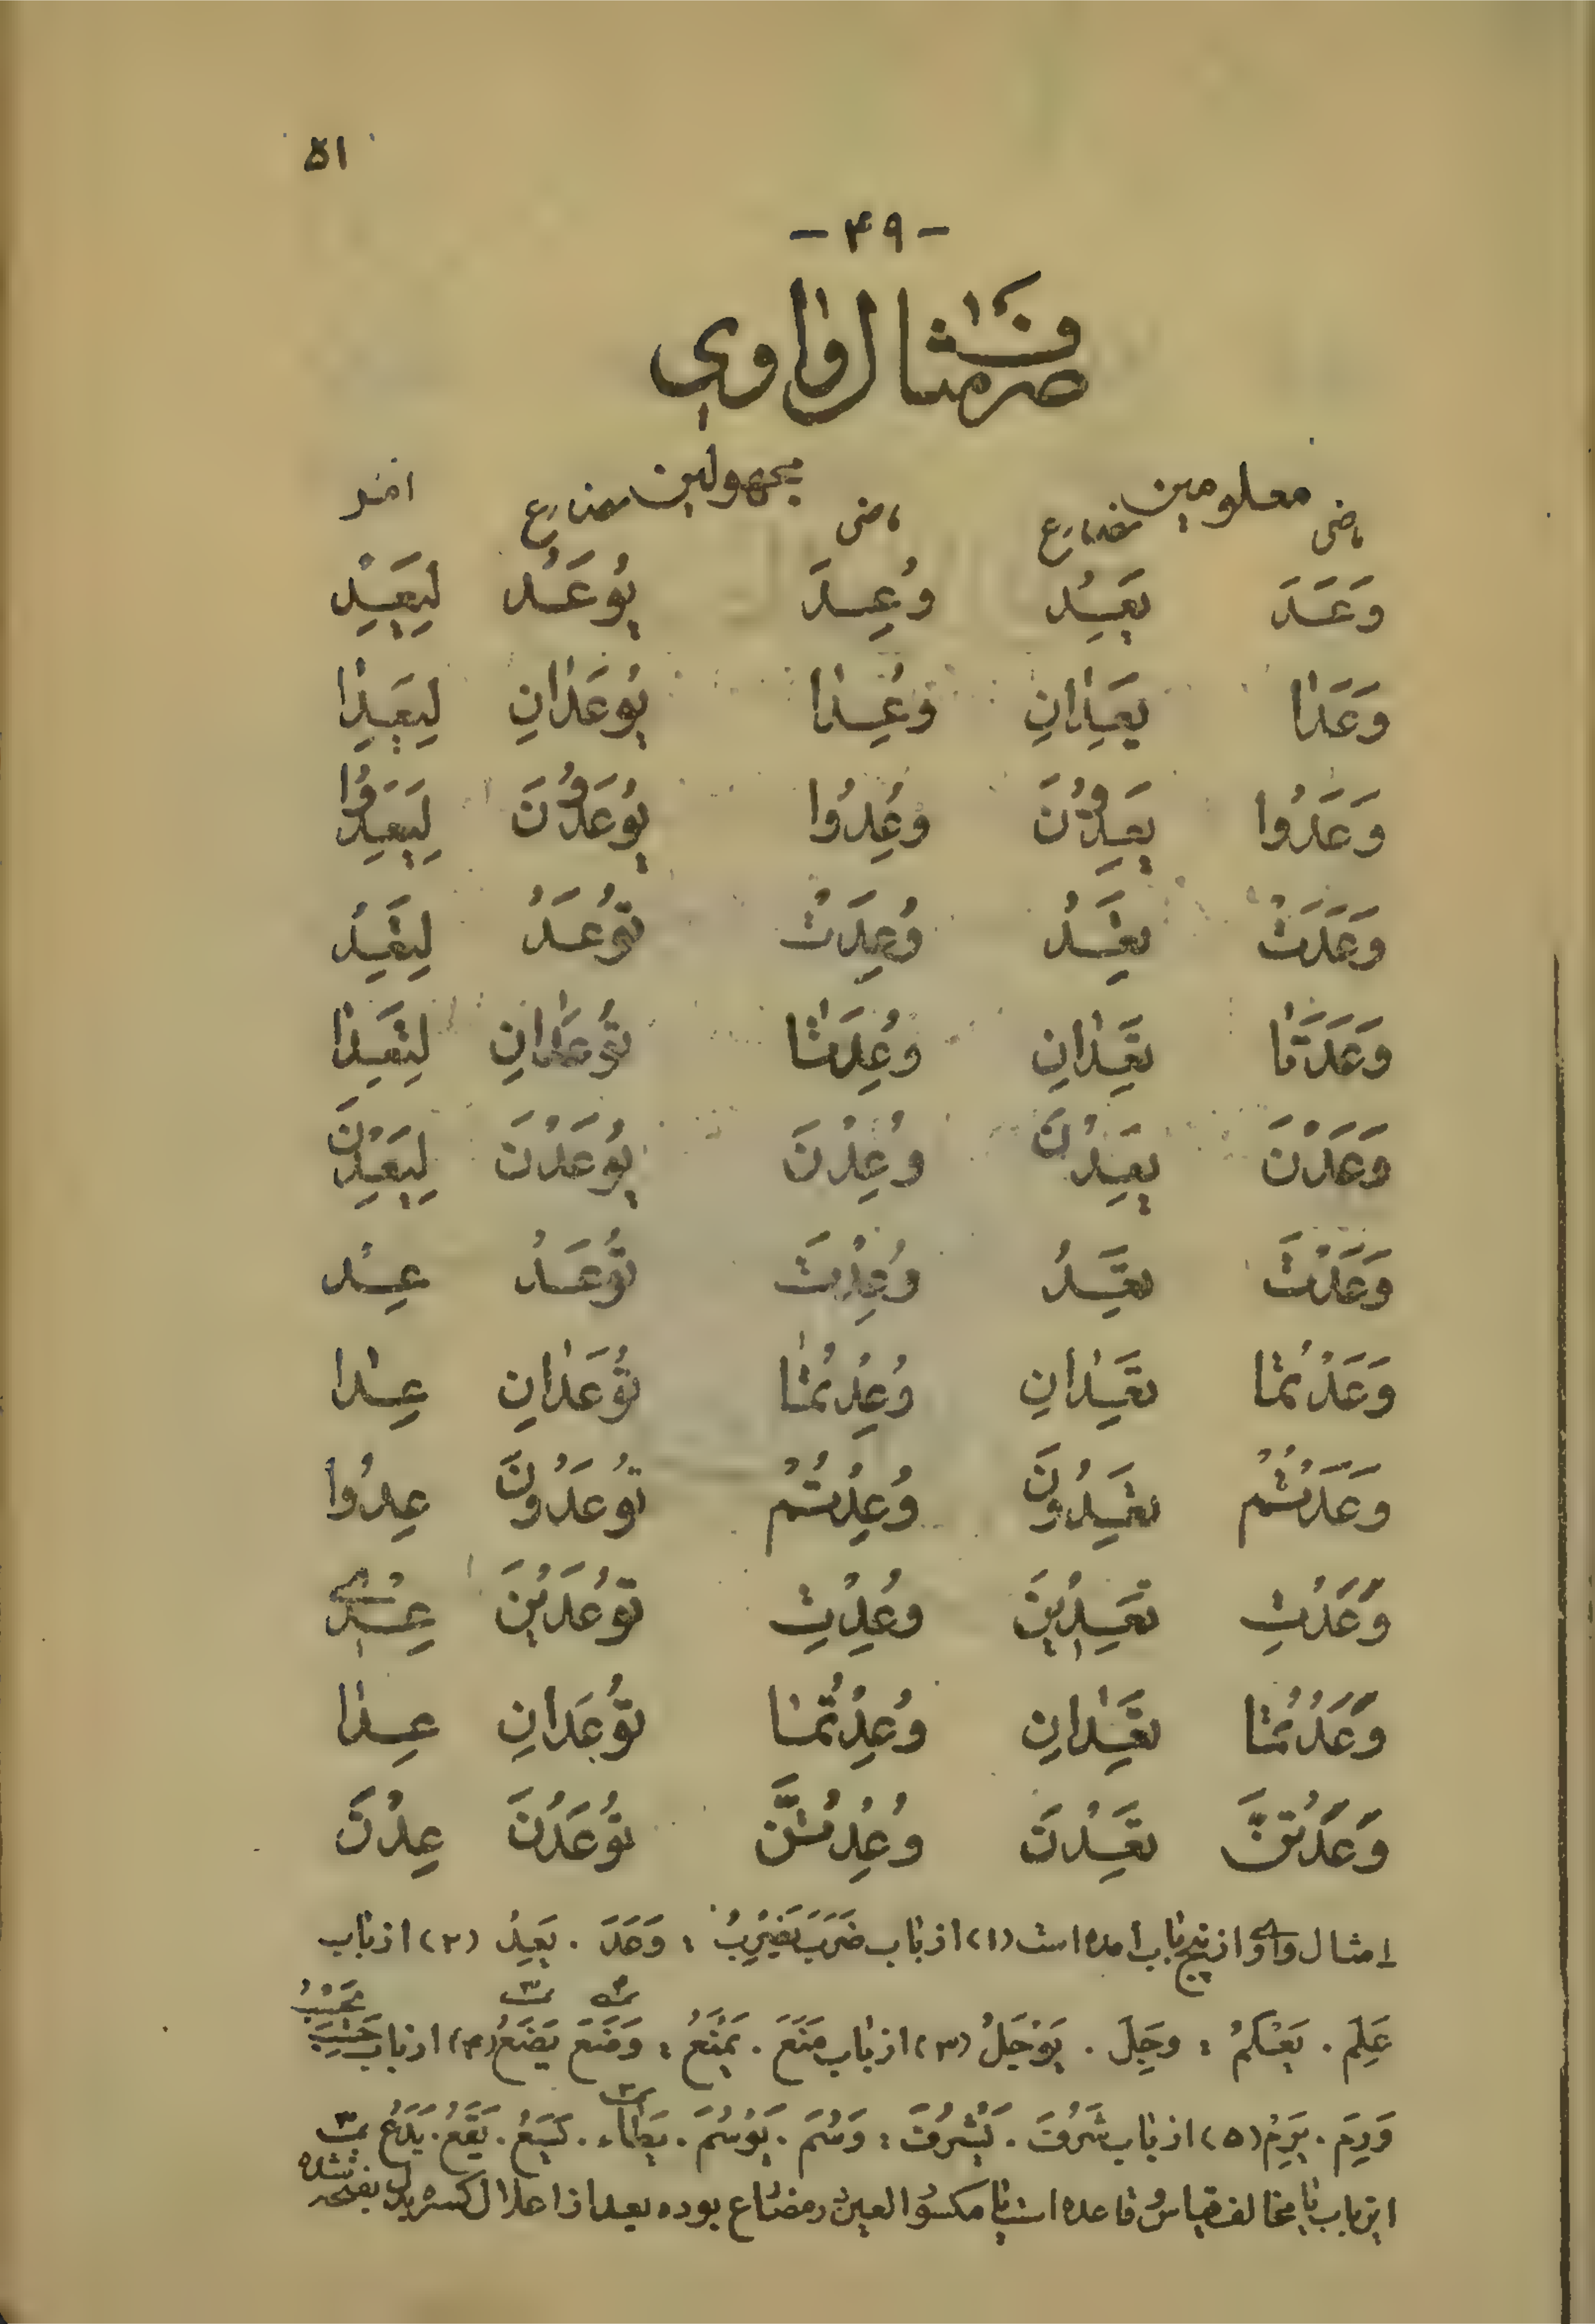 ۵۱
- ۴۹ -
صرف مثال واوي
معلومين مجهولين امر
ماضى مضارع ماضى مضارع
وَعَدَ يَعِدُ وُعِدَ يُوعَدُ لِيَعِدْ
وَعَدٰا يَعِدٰانِ وُعِدٰا يُوعَدٰانِ لِيَعِدٰا
وَعَدُوا يَعِدُونَ وُعِدُوا يُوعَدُونَ لِيَعِدُوا
وَعَدَتْ تَعِدُ وُعِدَتْ تُوعَدُ لِتَعِدْ
وَعَدَتٰا تَعِدٰانِ وُعِدَتٰا تُوعَدٰانِ لِتَعِدٰا
وَعَدْنَ يَعِدْنَ وُعِدْنَ يُوعَدْنَ لِيَعِدْنَ
وَعَدْتَ تَعِدُ وُعِدْتَ تُوعَدُ عِدْ
وَعَدْتُمٰا تَعِدٰانِ وُعِدْتُمٰا تُوعَدٰانِ عِدٰا
وَعَدْتُمْ تَعِدُونَ وُعِدْتُمْ تُوعَدُونَ عِدُوا
وَعَدْتِ تَعِدِيْنَ وُعِدْتِ تُوعَدَيْنَ عِدِيْ
وَعَدْتُمٰا تَعِدٰانِ وُعِدْتُمٰا تُوعَدٰانِ عِدٰا
وَعَدْتُنَّ تَعِدْنَ وُعِدْتُنَّ تُوعَدْنَ عِدْنَ
۱ مثال واوي از پنج باب امده است (۱) از باب ضَرَبَ يَضْرِبُ : وَعَدَ . يَعِدُ (۲) از باب
عَلِمَ . يَعْلَمُ : وَجِلَ . يَوْجَلُ (۳) از باب مَنَعَ . يَمْنَعُ : وَضَعَ يَضَعُ (۴) از باب حَسِبَ يَحْسِبُ
وَرِمَ . يَرِمُ (۵) از باب شَرُفَ . يَشْرُفُ : وَسُمَ . يَوْسُمُ . يَطَاءُ . يَسَعُ . يَقَعُ . يَدَعُ
اين باب با مخالف قياس و قاعده است يا مكسور العين در مضارع بوده بعد از اعلال كسره بدل بفتحه شده